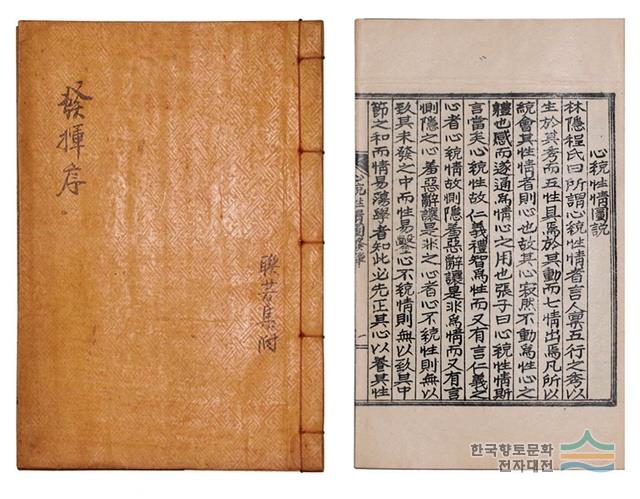 發揮序
聯芳集附
心統性情圖說
林隱程氏曰所謂心統性情者言人稟五行之秀以
生於其秀而五性具焉於其動而七情出焉凡所以
統會其性情者則心也故其心寂然不動爲性心之
體也感而遂通爲情心之用也張子曰心統性情斯
言當矣心統性故仁義禮智爲性而又有言仁義之
心者心統情故惻隱羞惡辭讓是非爲情而又有言
惻隱之心羞惡辭讓是非之心者心不統性則無以
致其未發之中而性易鑿心不統情則無以致其中
節之和而情易蕩學者知此必先正其心以養其性
心統性情圖發揮
一
한국향토문화
전자대전